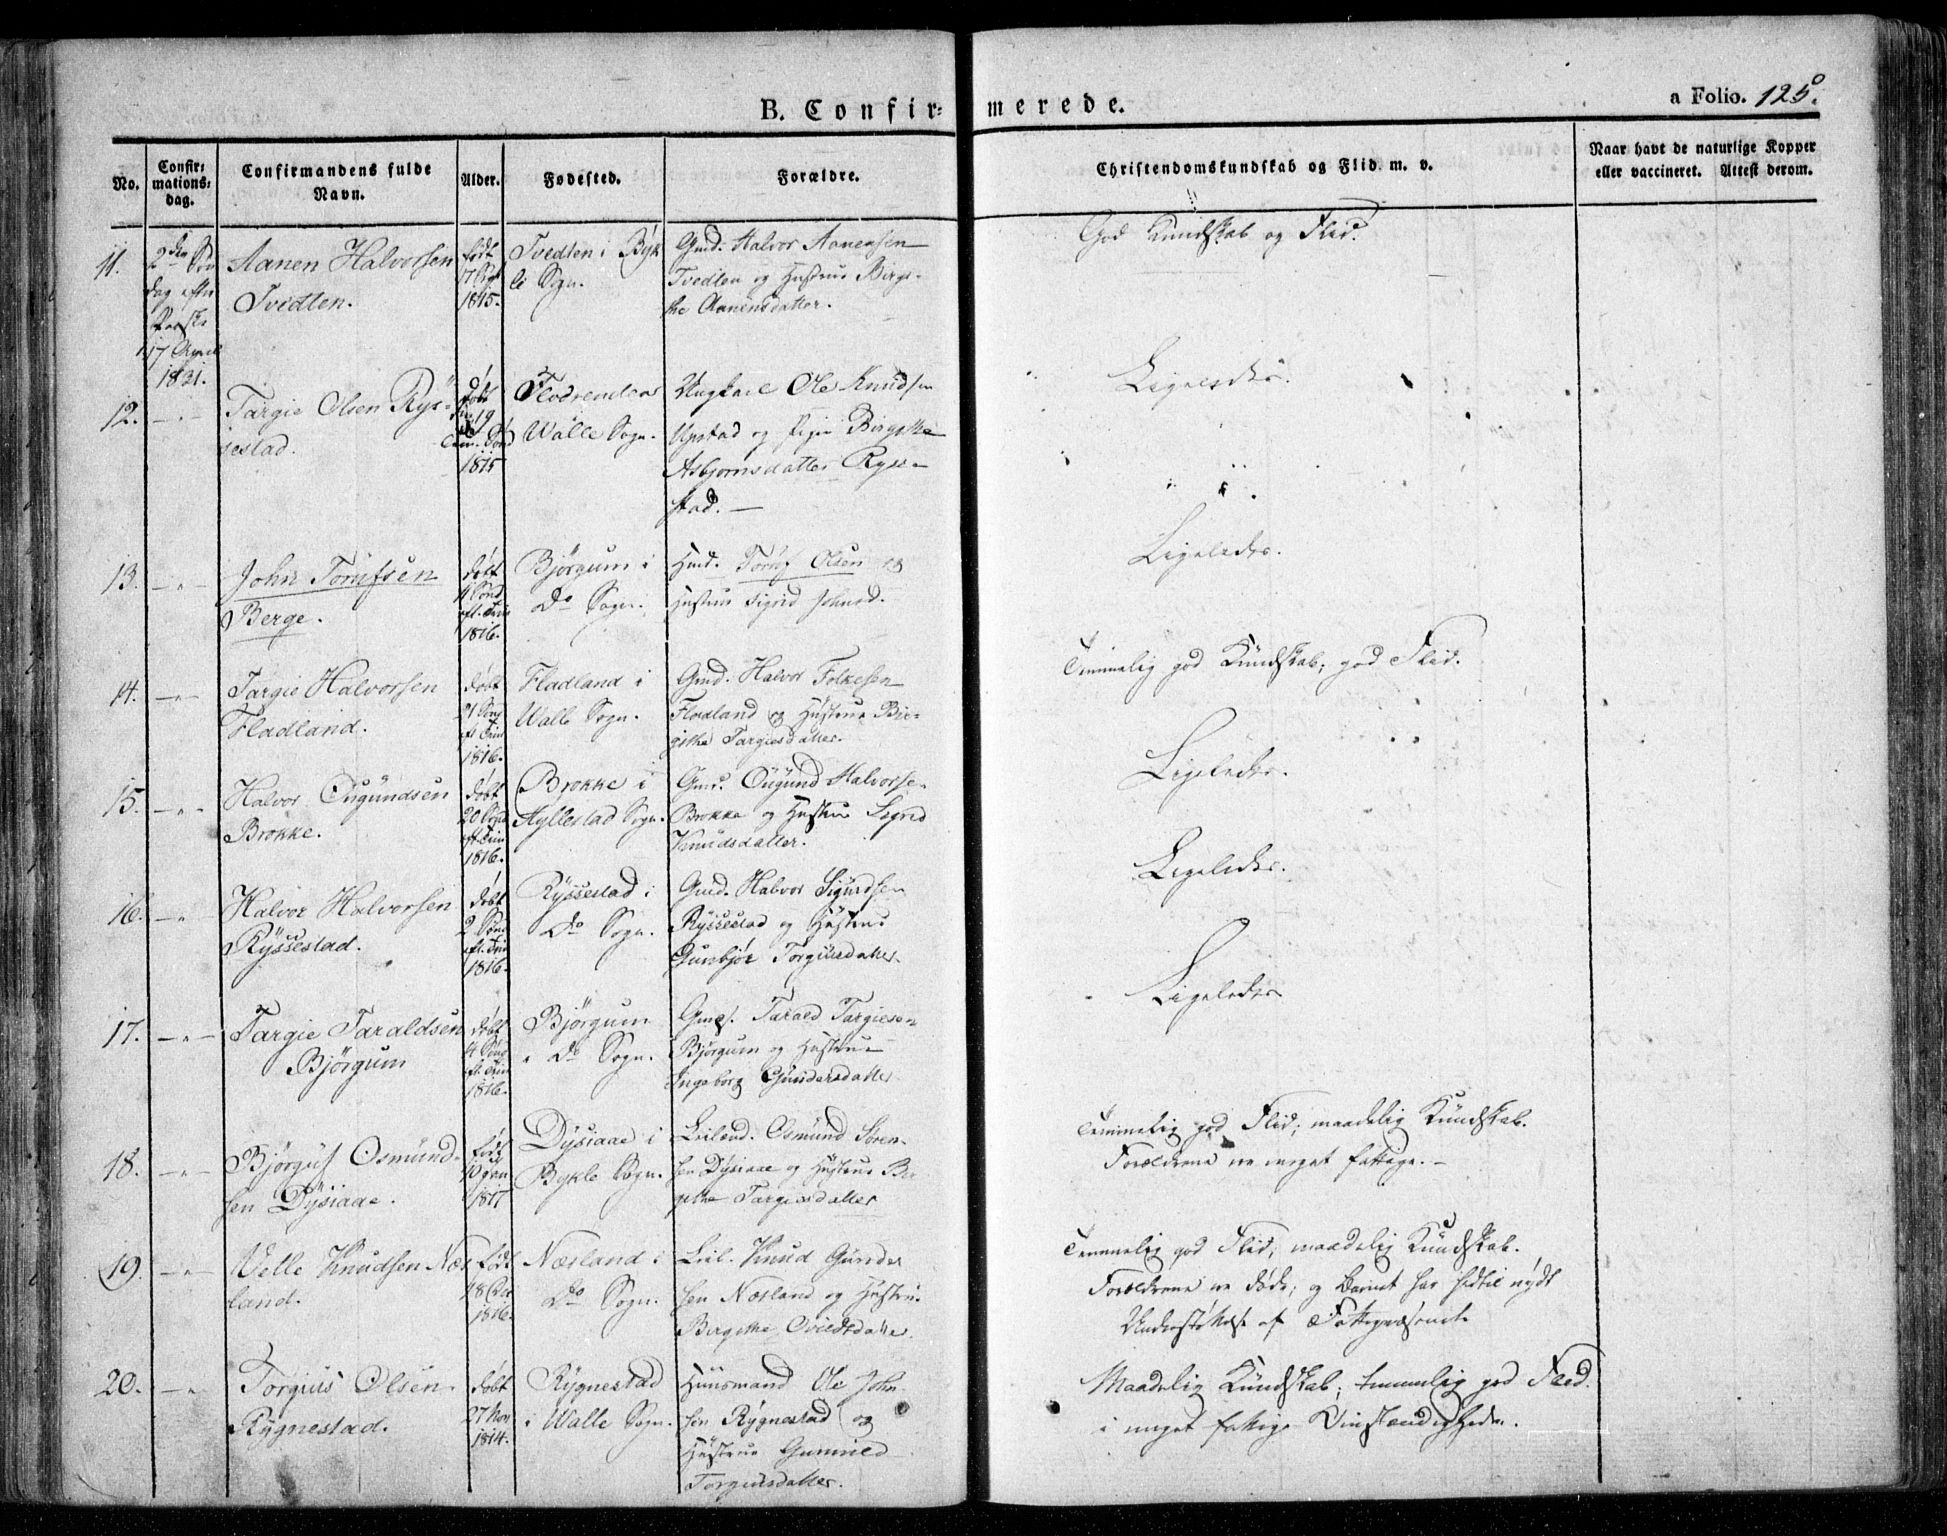 B. Confir=
merede.
a Folio. 125.
No.
Confir=
mations=
dag.
Confirmandens fulde
Navn.
Alder.
Fødested.
Forældre.
Christendomskundskab og Flid m. v.
Naar havt de naturlige Kopper
eller vaccineret. Attest derom.
11.
2den Søn
dag efter
Paaske
17 April
1831.
Aanen Halvorsen
Tvedten.
født
1815.
Tvedten i Byk
le Sogn.
Gmd. Halvor Aanensen
Tvedten og Hustrue Birgi-
the Aanensdatter.
God Kundskab og Flid.
12.
Targie Olsen Rys=
sestad.
Døbt
19
1815
Walle Sogn.
Ungkarl Ole Knudsen
Upstad og Pige Birgithe
Asbjørnsdatter Rysse-
stad. —
Ligeledes.
13.
John Torufsen
Berge.
døbt
4 Sønd
eft. Trin
1816.
Bjørgum i
Do Sogn.
Hmd. Toruf Olsen og
Hustrue Sigrid Johnsd.
Ligeledes.
14.
Targie Halvorsen
Fladland.
døbt
21 Sønd
eft Trin
1816.
Fladland i
Walle Sogn.
Gmd. Halvor Folkesen
Fladland og Hustrue Bir-
githe Targiesdatter.
Temmelig god Kundskab; god Flid.
15.
Halvor Ougundsen
Brokke.
døbt
20 Sønd
eft Trin
1816.
Brokke i
Hyllestad Sogn.
Gmd. Ougund Halvorse-
Brokke og Hustrue Sigrid
Knudsdatter.
Ligeledes.
16.
Halvor Halvorsen
Ryssestad.
døbt
2 Sønd
eft. Trin
1816.
Ryssestad i
Do Sogn.
Gmd. Halvor Sigurdsen
Ryssestad og Hustrue
Gunbjør Torguusdatter.
Ligeledes.
17.
Targie Taraldsen
Bjørgum
døbt
4 Sønd
eft. Trin
1816.
Bjørgum
i Do Sogn.
Gmd. Tarald Targiesen
Bjørgum og Hustrue
Ingeborg Gundersdatter
Ligeledes
18.
Bjørguf Osmund-
sen Dysiaae.
født
10 Jan
1817
Dysiaae i
Bykle Sogn.
Leilænd. Osmund Søren-
sen Dysiaae og Hustrue Bir
githe Targiesdatter
Temmelig god Flid; maadelig Kundskab.
Forældrene ere meget fattige. —
19.
Velle Knudsen Næs
land.
født
18 Dec
1816.
Næsland i
Do Sogn.
Leil. Knud Gunder
sen Næsland og Hustru.
Birgithe Ovidsdatter.
Temmelig god Flid; maadelig Kundskab.
Forældrene ere døde; og Barnet har hidtil nydt
Understøttelse af Fattigvæsenet.
20.
Torguus Olsen
Rygnestad.
døbt
27 Nov
1814.
Rygnestad
i Walle Sogn.
Huusmand Ole John
sen Rygnestad og
Hustrue Gunnild
Torguusdatter.
Maadelig Kundskab; temmelig god Flid.
i meget fattige Omstændigheder.